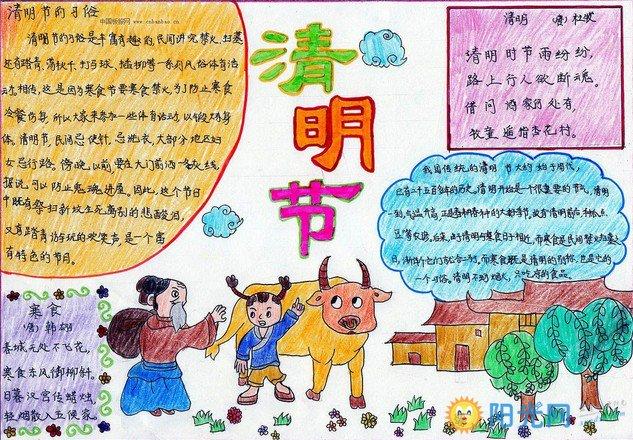 清明节的习俗
中国板报网
www.cnbanbao.cn
清明节的习俗是丰富有趣的,民间讲究禁火、扫墓
还有踏青、荡秋千、打马球、插柳等一系列风俗体育活
动,相传,这是因为寒食节要寒食禁火,为了防止寒食
冷餐伤身,所以大家来参加一些体育活动,以锻炼身
体。清明节,民间忌使针,忌洗衣,大部分地区妇
女忌行路。傍晚以前,要在大门前洒一条灰线,
据说可以防止鬼魂进屋,因此,这个节日
中既有祭扫新坟生死离别的悲酸泪,
又有踏青游玩的欢笑声,是一个富
有特色的节日。
清明节
清明 (唐)杜牧
清明时节雨纷纷,
路上行人欲断魂。
借问酒家何处有,
牧童遥指杏花村。
我国传统的清明节大约始于周代,
已有二千五百多年的历史,清明开始是一个很重要的节气,清明
一到,气温升高,正是春耕春种的大好季节,故有清明前后种瓜点
豆
后来,由于清明与寒食日子相近,而寒食是民间禁火扫墓之
日,渐渐
寒食
清明
(唐)韩翃
春城无处不飞花,
寒食东风御柳斜。
日暮汉宫传蜡烛,
轻烟散入五侯家。
阳光网